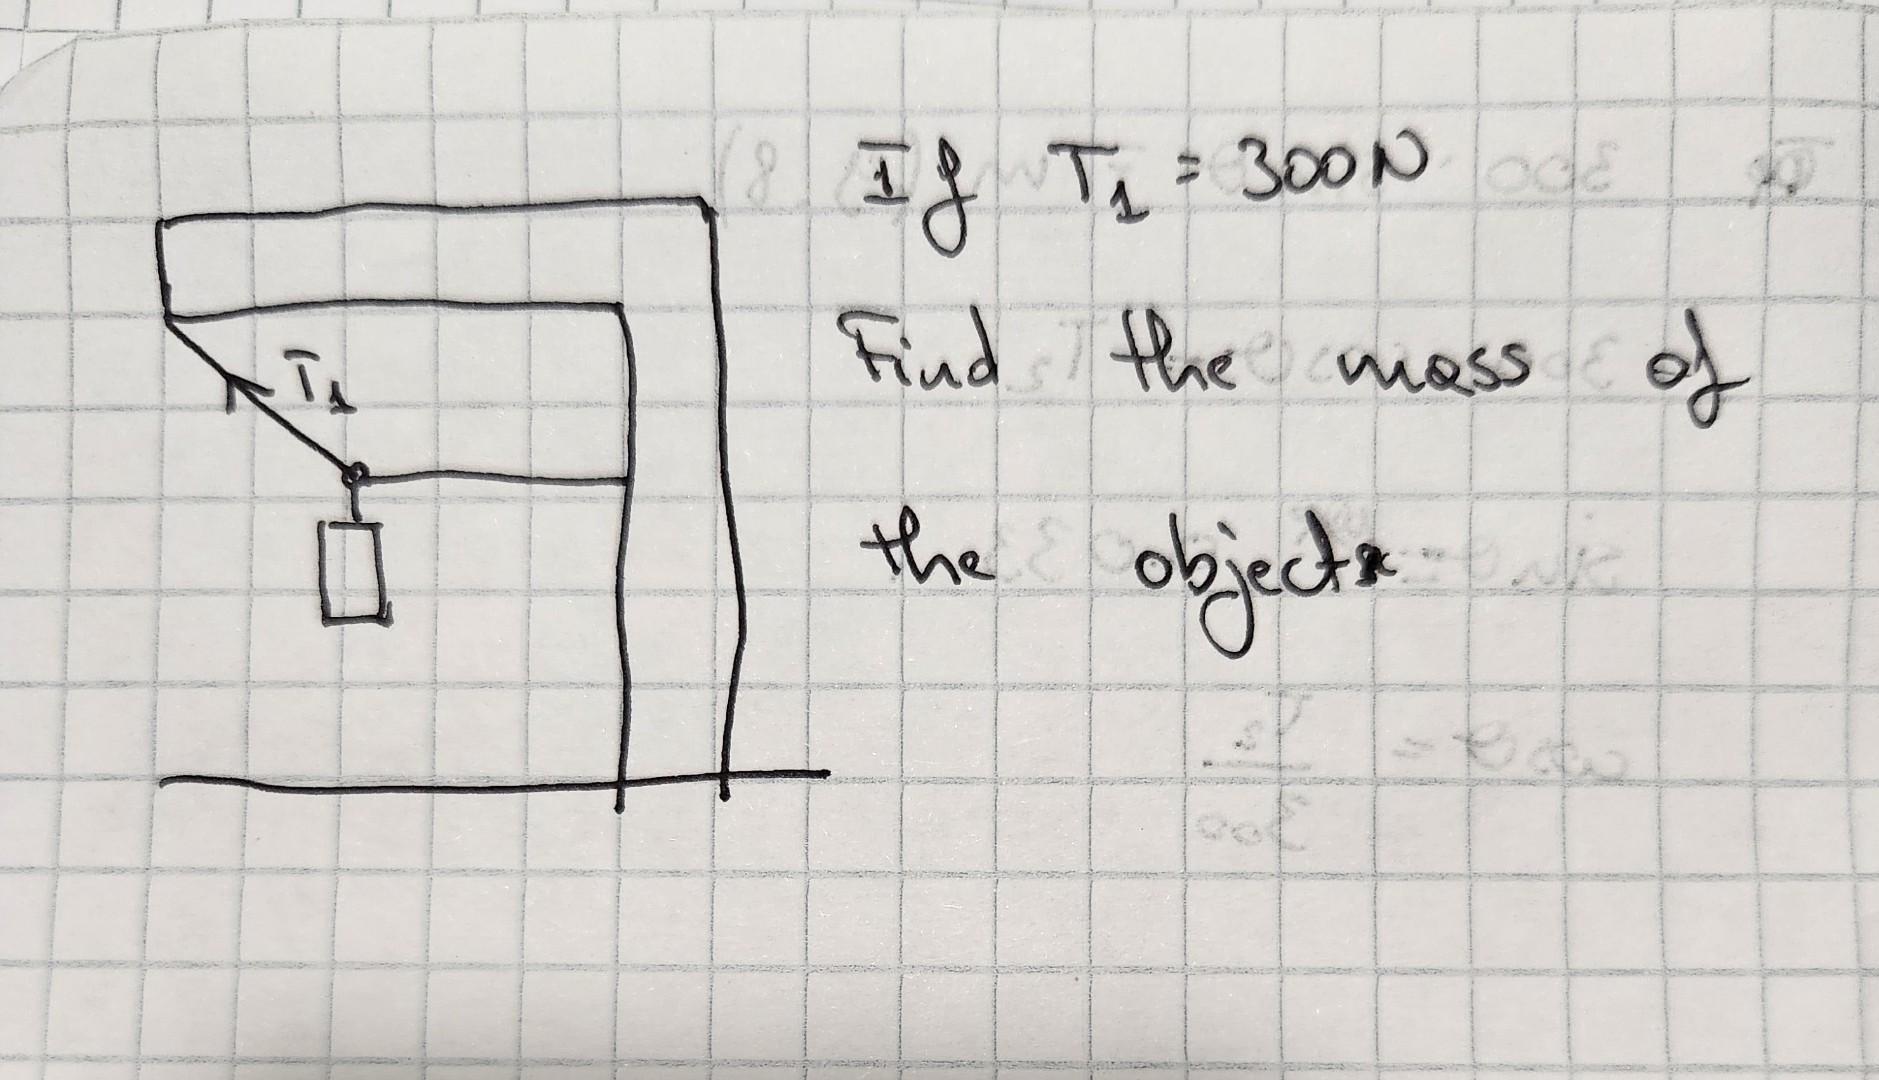 If T₁ = 300N
Find the mass of
T₁
the object